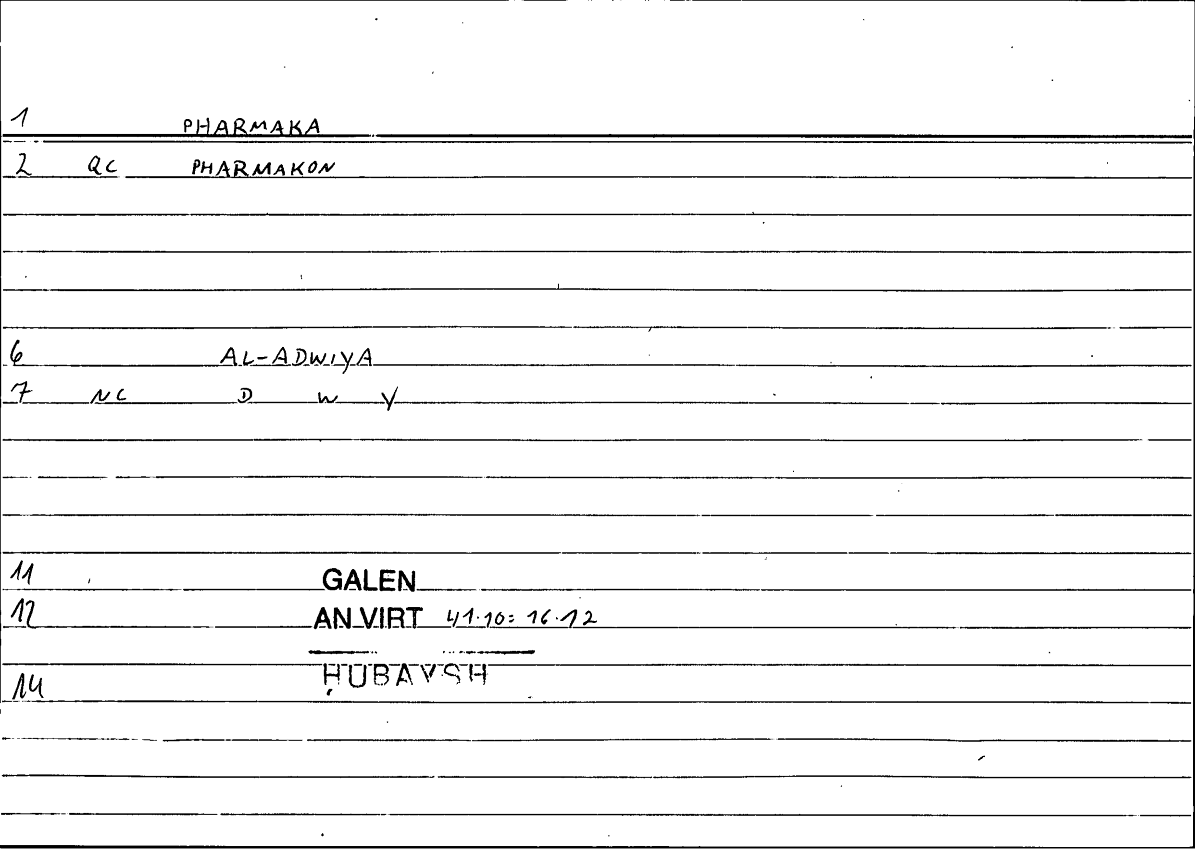 1 PHARMAKA
2 QC PHARMAKON
6 AL-ADWIYA
7 NC D W Y
11 GALEN
12 AN VIRT 41.10: 16.12
ḤUBAYSH
14